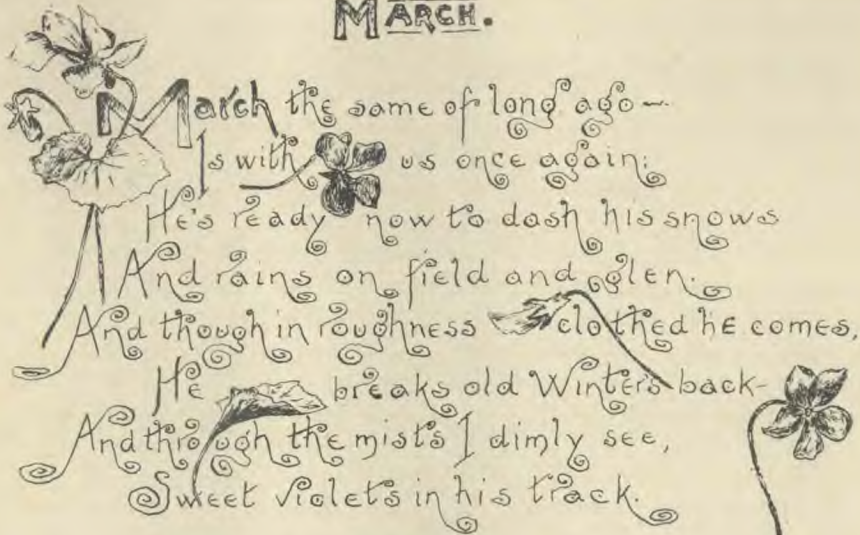 MARCH.
March the same of long ago—
Is with us once again;
He's ready now to dash his snows
And rains on field and glen.
And though in roughness clothed he comes,
He breaks old Winter's back-
And through the mists I dimly see,
Sweet violets in his track.